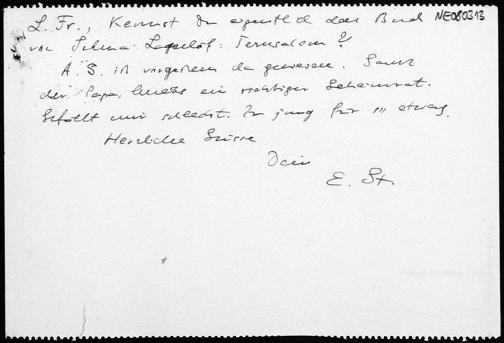 L. Fr., Kennst Du eigentlich das Buch NE080313
von Selma Lagerlöf: Jerusalem?
A. S. ist vorgestern da gewesen. Ganz
der Papa, ein richtiger Geheimrat.
Gefällt mir schlecht. Zu jung für so etwas.
Herzliche Grüsse
Dein
E. St.